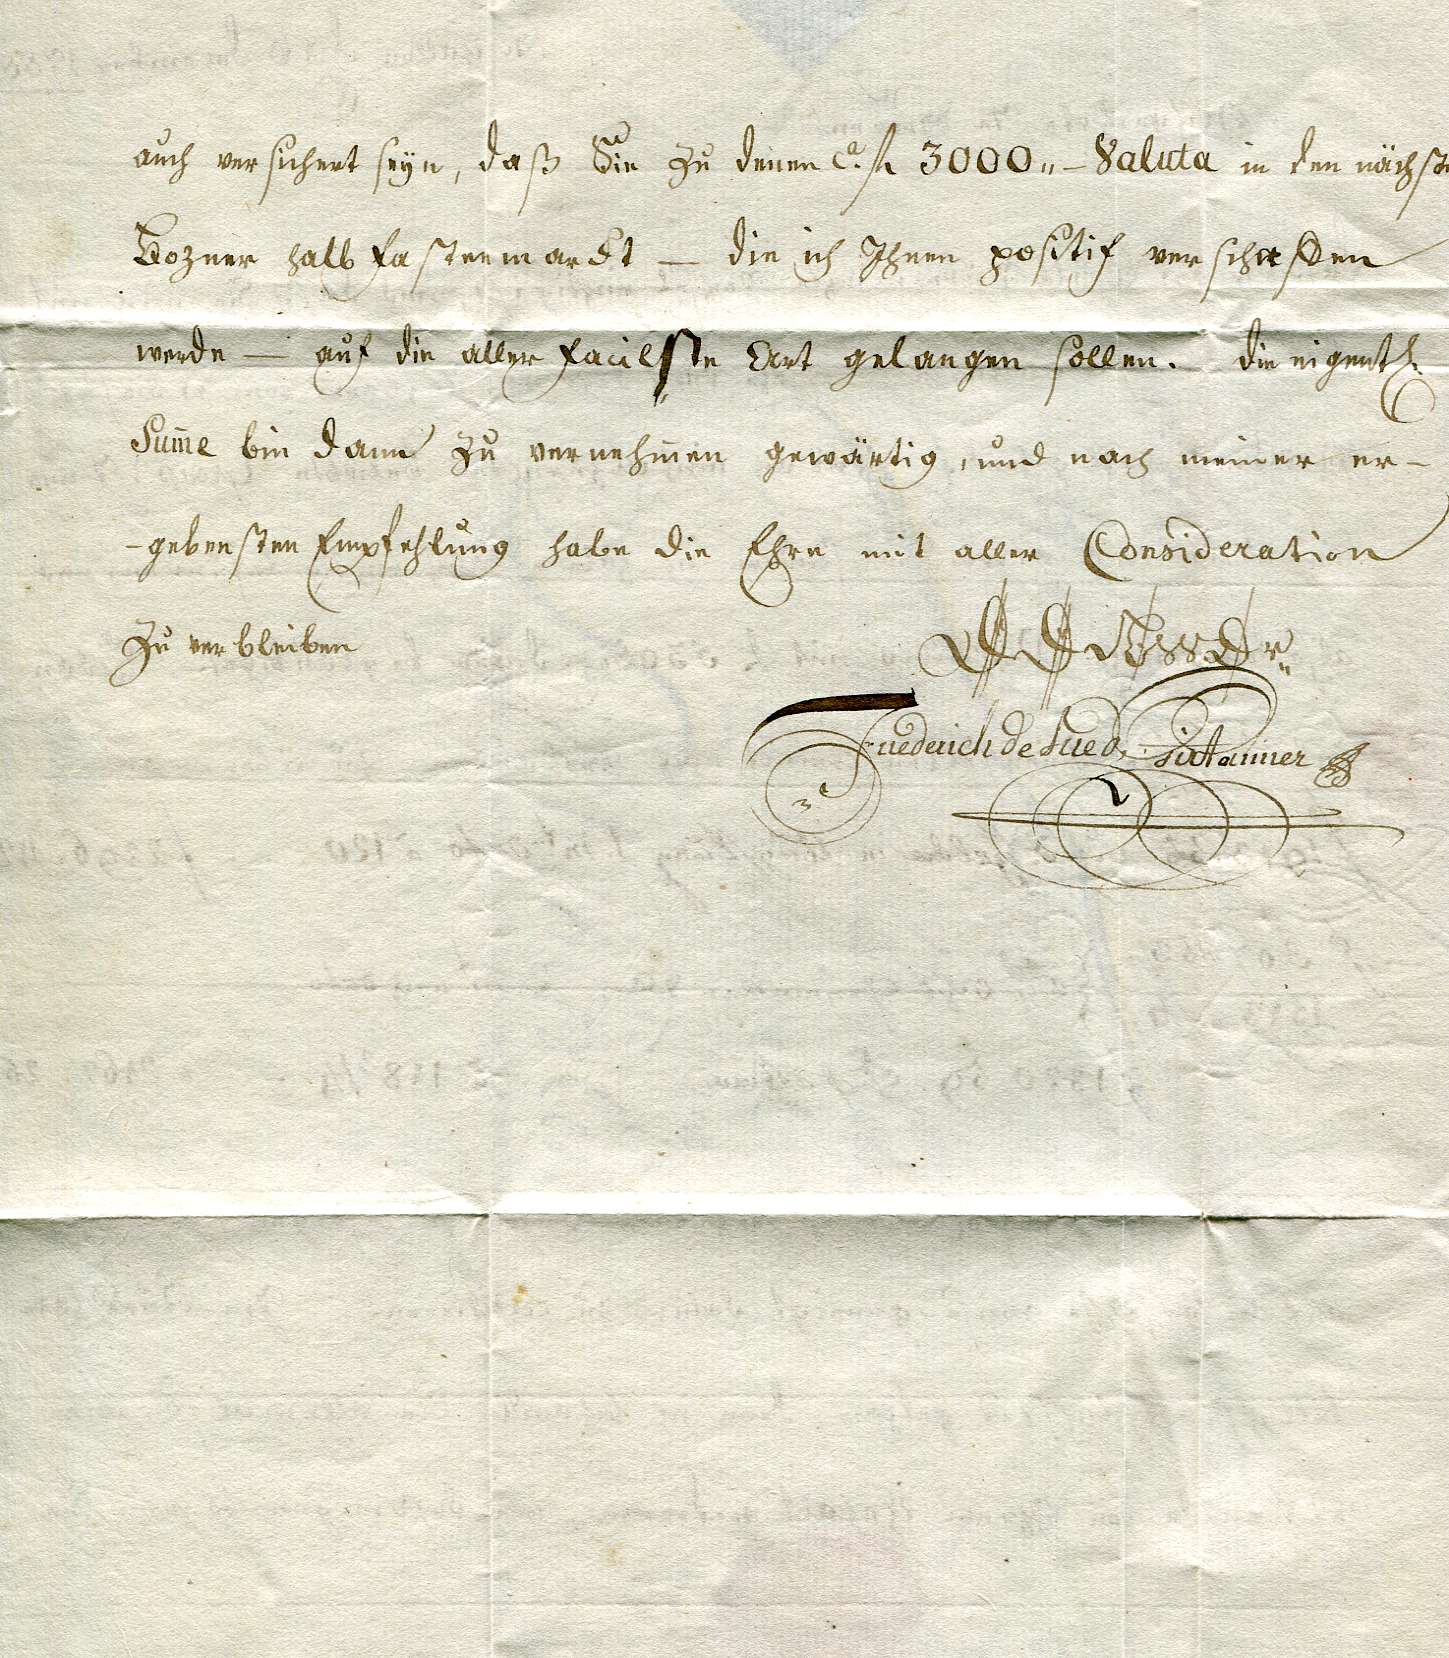 auch versichert seyn, daß Sie zu denen Cª. fl 3000„– Valuta in den nächst
Bozner halb fastenmarckt — die ich Ihnen positif verschaffen
werde — auf die aller facilste Art gelangen sollen. die eigentl.
Sum̄e bin dann zu vernehmen gewärtig, und nach meiner er-
-gebensten Empfehlung habe die Ehre mit aller Consideration
zu verbleiben
Friederich de Lued.